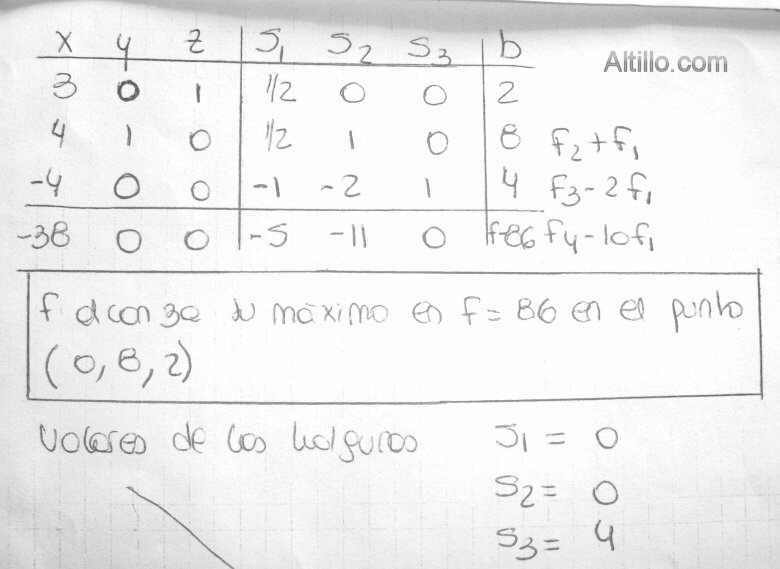 x y z S₁ S₂ S₃ b
Altillo.com
3 0 1 1/2 0 0 2
4 1 0 1/2 1 0 8 f₂+f₁
-4 0 0 -1 -2 1 4 f₃-2f₁
-38 0 0 -5 -11 0 f-86 f4-10f₁
f alcanza su máximo en f=86 en el punto
(0,8,2)
Valores de las holguras S₁ = 0
S₂ = 0
S₃ = 4